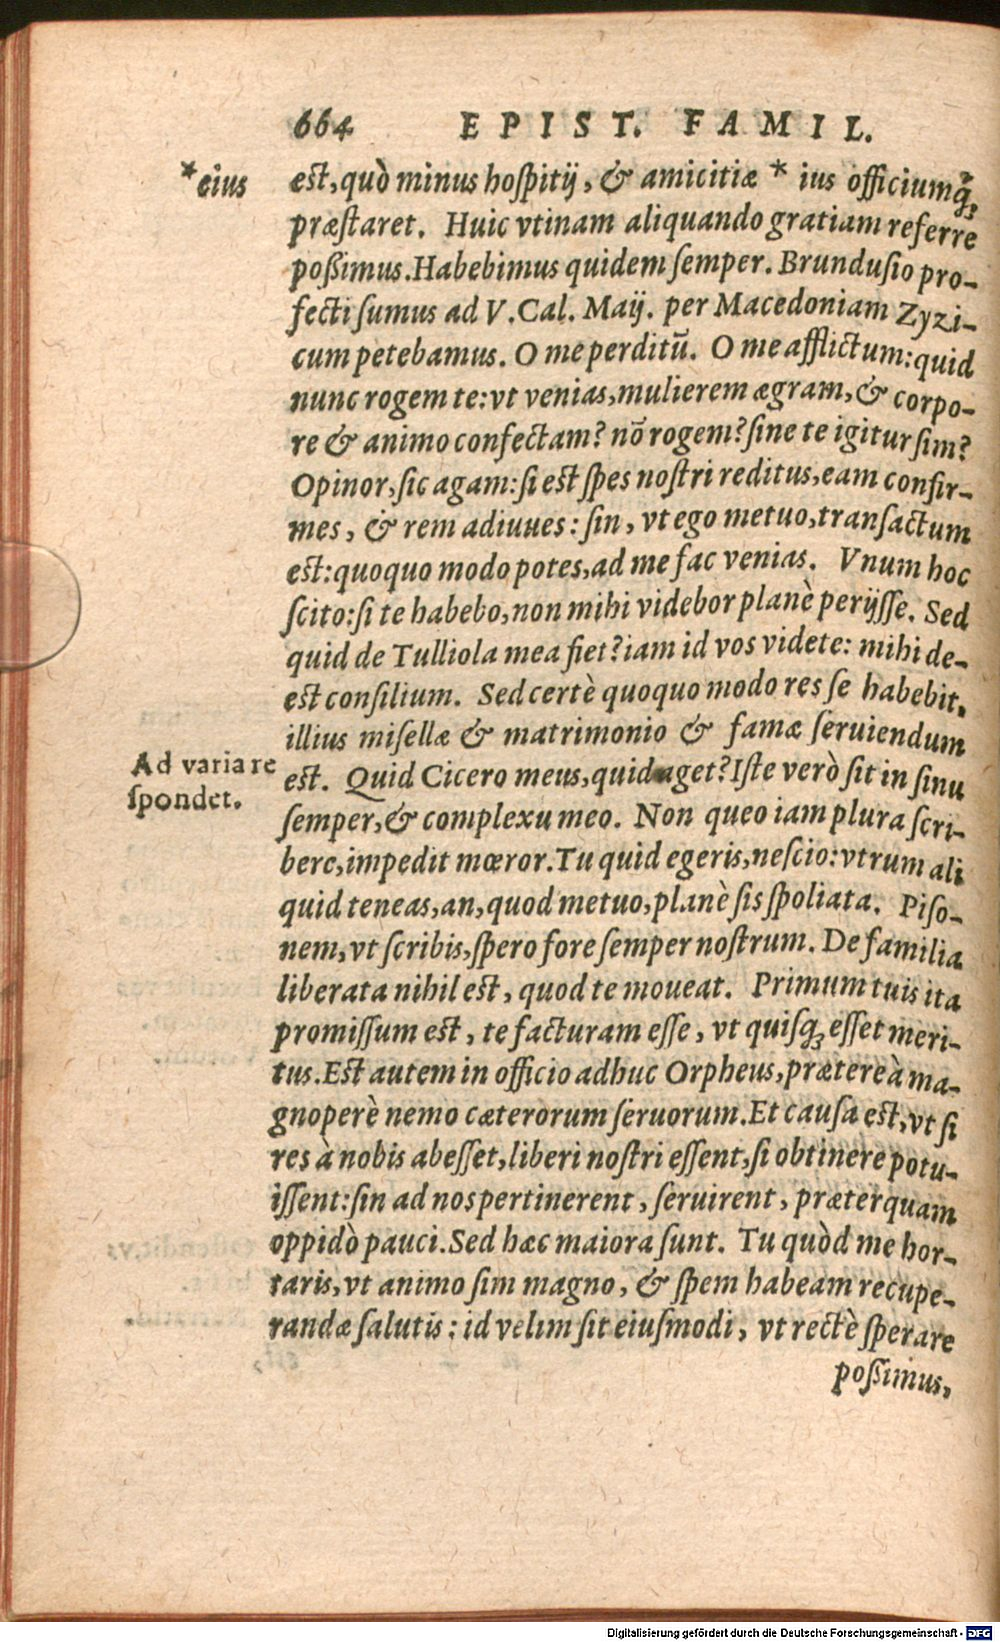 664 EPIST. FAMIL.
*eius
est, quò minus hoſpitij, & amicitiæ * ius officiumq́;
præſtaret. Huic vtinam aliquando gratiam referre
poßimus. Habebimus quidem ſemper. Brunduſio pro-
fecti ſumus ad V. Cal. Maij. per Macedoniam Zyzi-
cum petebamus. O me perditū. O me afflictum: quid
nunc rogem te: vt venias, mulierem ægram, & corpo-
re & animo confectam? nō rogem? ſine te igitur ſim?
Opinor, ſic agam: ſi est ſpes noſtri reditus, eam confir-
mes, & rem adiuues: ſin, vt ego metuo, tranſactum
est: quoquo modo potes, ad me fac venias. Vnum hoc
ſcito: ſi te habebo, non mihi videbor planè perijſſe. Sed
quid de Tulliola mea fiet? iam id vos videte: mihi de-
est conſilium. Sed certè quoquo modo res ſe habebit,
illius miſellæ & matrimonio & famæ ſeruiendum
Ad varia re
ſpondet.
est. Quid Cicero meus, quid aget? Iſte verò ſit in ſinu
ſemper, & complexu meo. Non queo iam plura ſcri-
bere, impedit mœror. Tu quid egeris, neſcio: vtrum ali
quid teneas, an, quod metuo, planè ſis ſpoliata. Piſo-
nem, vt ſcribis, ſpero fore ſemper noſtrum. De familia
liberata nihil est, quod te moueat. Primum tuis ita
promiſſum est, te facturam eſſe, vt quiſq; eſſet meri-
tus. Est autem in officio adhuc Orpheus, prætereà ma-
gnoperè nemo cæterorum ſeruorum. Et cauſa est, vt ſi
res à nobis abeſſet, liberi noſtri eſſent, ſi obtinere potu-
iſſent: ſin ad nos pertinerent, ſeruirent, præterquam
oppidò pauci. Sed hæc maiora ſunt. Tu quòd me hor-
taris, vt animo ſim magno, & ſpem habeam recupe-
randæ ſalutis: id velim ſit eiuſmodi, vt rectè ſperare
poßimus,
Digitalisierung gefördert durch die Deutsche Forschungsgemeinschaft - DFG